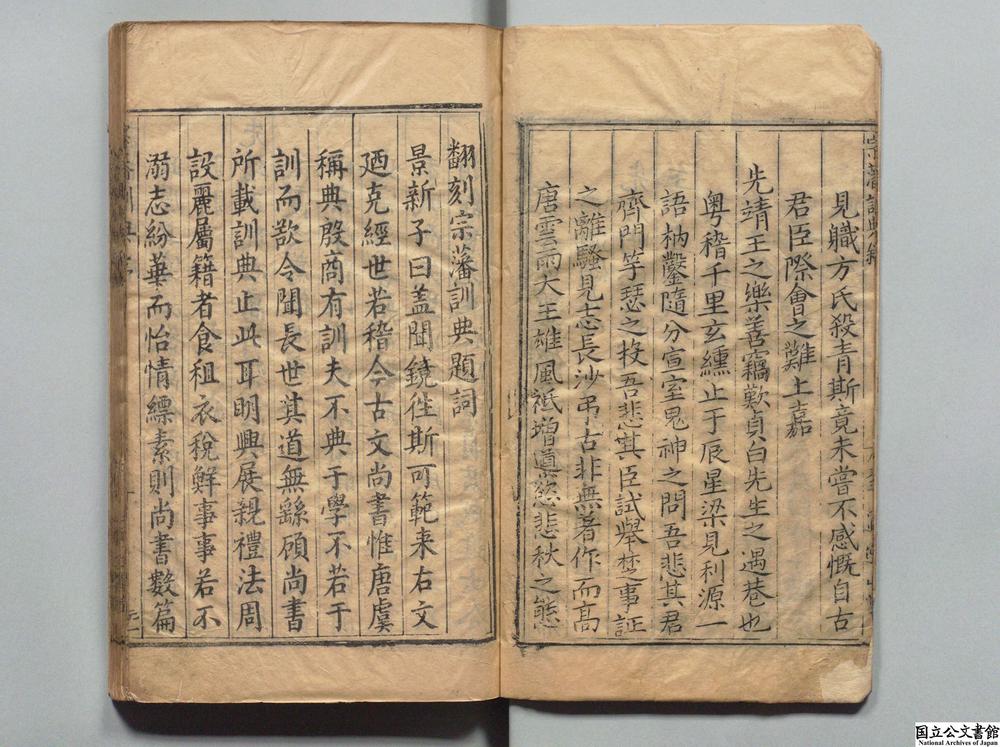 見職方氏殺青斯竟未嘗不感慨自古
君臣際會之難上嘉
先靖王之樂善竊歎貞白先生之遇巷也
粵稽千里玄纁止于辰星梁見利源一
語枘鑿隨分宣室鬼神之問吾悲其君
齊門竽瑟之投吾悲其臣試舉楚事証
之離騷見志長沙弔古非無著作而高
唐雲雨大王雄風祇增眞慾悲秋之態
翻刻宗藩訓典題詞
景新子曰盖聞鏡徃斯可範来右文
廼克經世若稽今古文尚書惟唐虞
稱典殷商有訓夫不典于學不若于
訓而欲令聞長世其道無繇頋尚書
所載訓典止此耳明興展親禮法周
設麗屬籍者食租衣稅鮮事事若不
溺志紛華而怡情縹素則尚書數篇
国立公文書館
National Archives of Japan